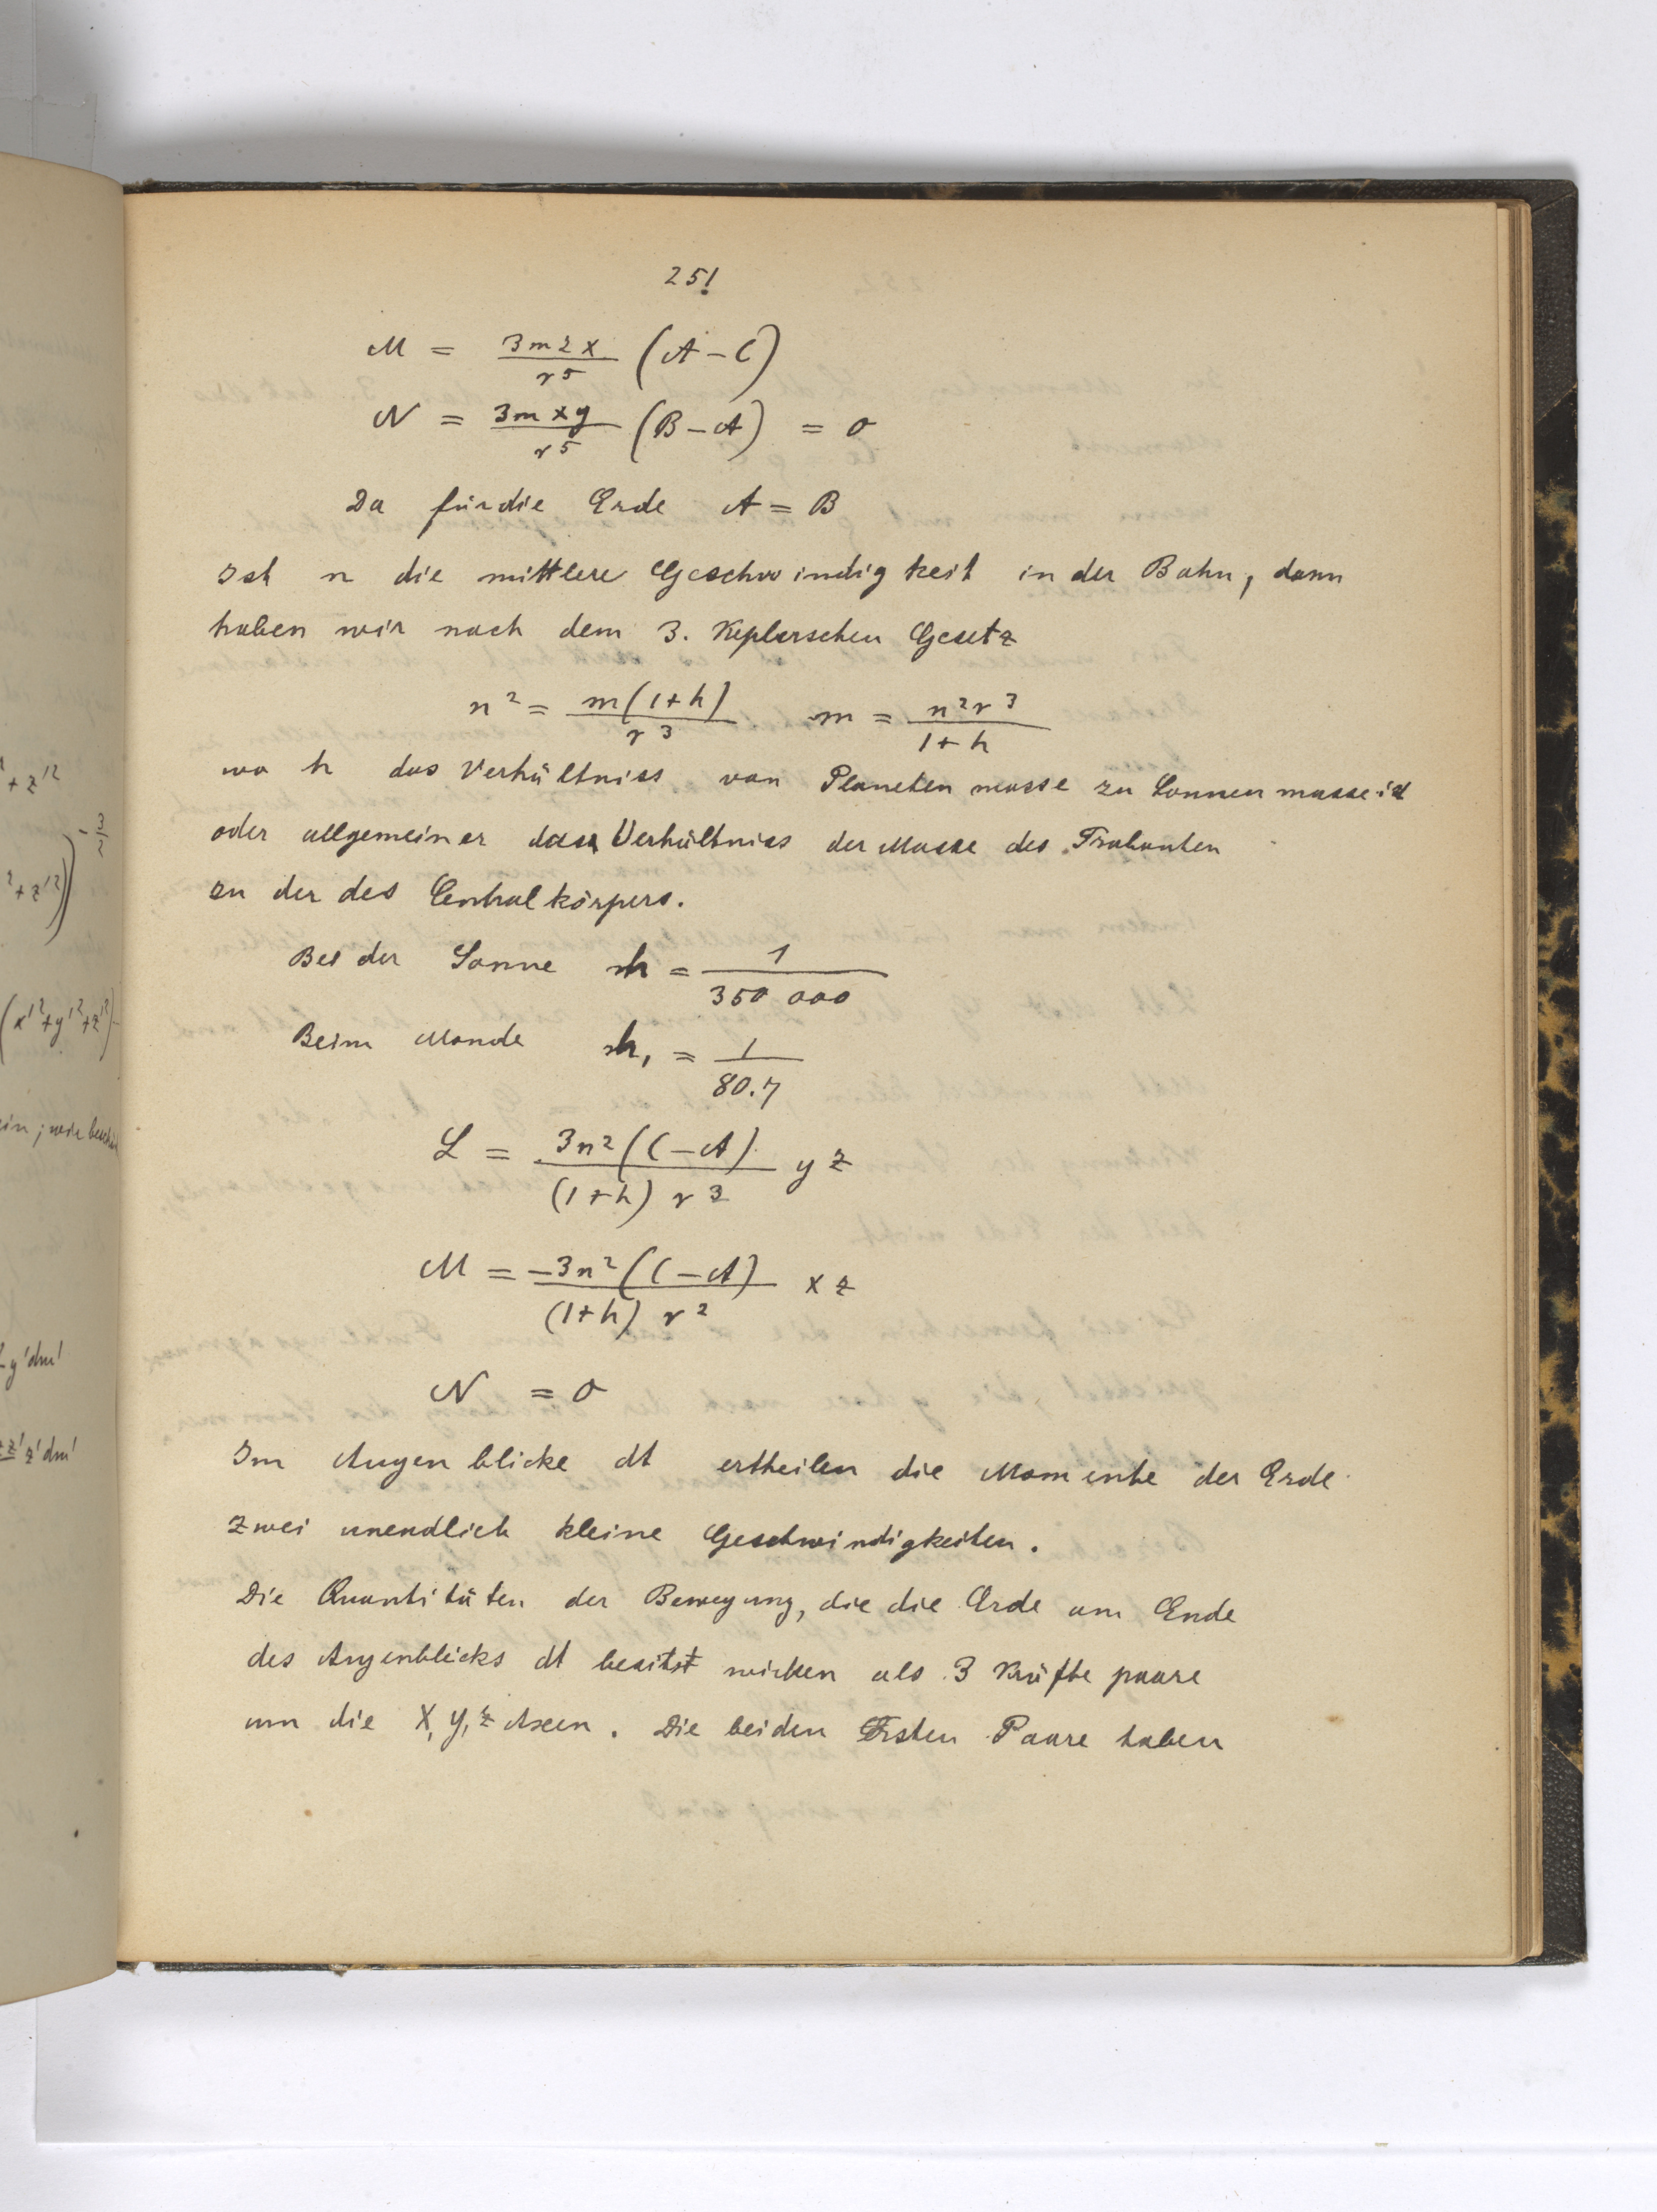 251
M = 3mzx/r⁵ (A-C)
N = 3mxy/r⁵ (B-A) = 0
Da für die Erde A = B
Ist n die mittlere Geschwindigkeit in der Bahn, dann
haben wir nach dem 3. Keplerschen Gesetz
n² = m(1+h)/r³ m = n²r³/1+h
wo h das Verhältniss von Planetenmasse zu Sonnenmasse ist
oder allgemeiner das Verhältniss der Masse des Trabanten
zu der des Centralkörpers.
Bei der Sonne h = 1/350 000
Beim Monde h₁ = 1/80.7
L = 3n²(C-A)/(1+h) r² yz
M = -3n²(C-A)/(1+h) r² xz
N = 0
Im Augenblicke dt ertheilen die Momente der Erde
zwei unendlich kleine Geschwindigkeiten.
Die Quantitäten der Bewegung, die die Erde am Ende
des Augenblicks dt besitzt wirken als 3 Kräftepaare
um die X, Y, Z Axen. Die beiden Ersten Paare haben
+ z'²
- 3/2
² + z'²))
(x'² + y'² + z'²)
y'dm'
zz' z'dm'